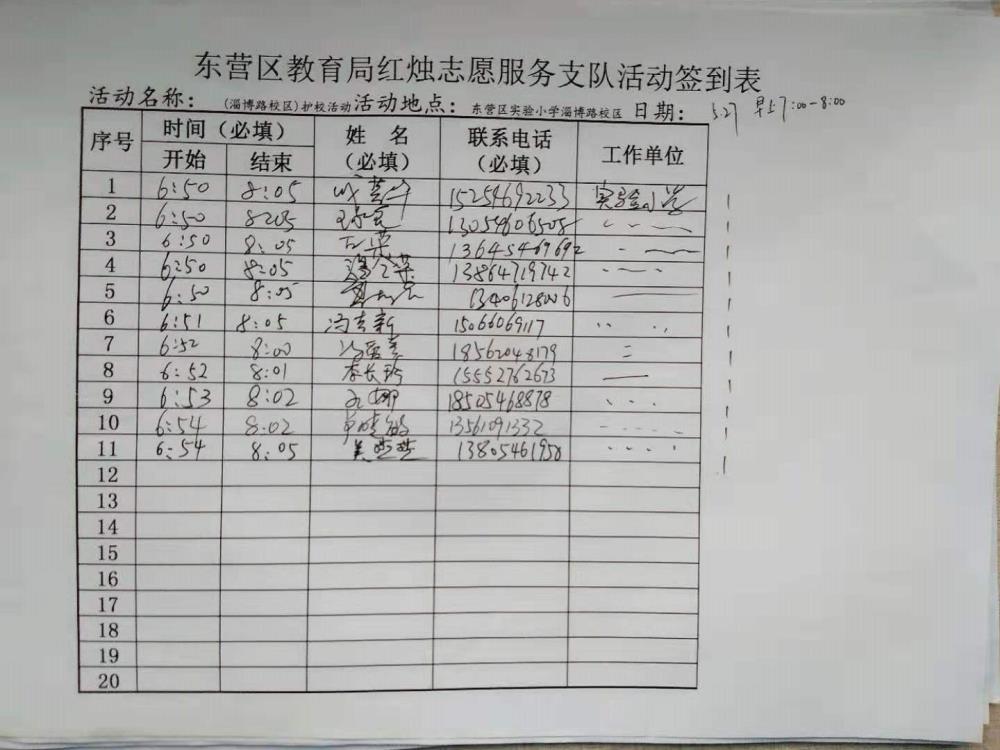 东营区教育局红烛志愿服务支队活动签到表
活动名称： (淄博路校区)护校活动 活动地点： 东营区实验小学淄博路校区 日期： 5.27 早上7:00-8:00
序号 时间（必填） 姓 名（必填） 联系电话（必填） 工作单位
开始 结束
1 6:50 8:05 15254692233 实验小学
2 6:50 8:05 13054606508
3 6:50 8:05 13645469692
4 6:50 8:05 13864719742
5 6:50 8:05 13406128006
6 6:51 8:05 冯吉新 15066069117
7 6:52 8:00 18562048179
8 6:52 8:01 李长玲 15552762673
9 6:53 8:02 18505468878
10 6:54 8:02 13561091332
11 6:54 8:05 13805461950
12
13
14
15
16
17
18
19
20